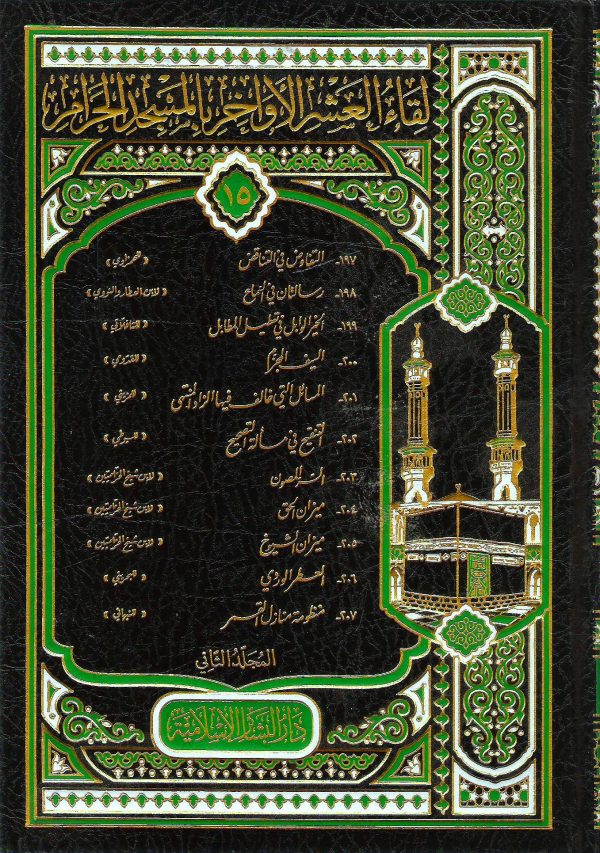 لقاء العشر الأواخر بالمسجد الحرام
١٥
١٩٧- التعارض في التناقض
١٩٨- رسالتان في السماع « لابن العطار والنووي »
١٩٩- الخير الوابل في
٢٠٠- السيف المجزم
٢٠١- المسائل التي خالف فيها الزاد المنتهى
٢٠٢- التنقيح في مسألة التصحيح « للسيوطي »
٢٠٣- السر المصون « لابن شيخ الحزاميين »
٢٠٤- ميزان الحق « لابن شيخ الحزاميين »
٢٠٥- ميزان الشيوخ « لابن شيخ الحزاميين »
٢٠٦- العطر الوردي
٢٠٧- منظومة منازل القمر
المجلد الثاني
دار البشائر الإسلامية